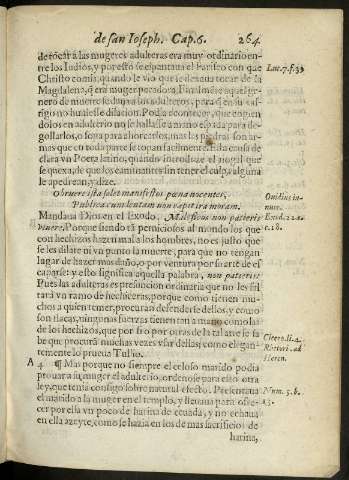 de san Ioseph. Cap. 6. 264
de tocar a las mugeres adulteras era muy ordinario en-
tre los Iudios, y por esto se espantaua el Fariseo con que
Christo comia, quando le vio que se dexaua tocar de la
Magdalena, q̃ era muger pecadora. Finalmẽte aquel ge-
nero de muerte se daua a los adulteros, para q̃ en su cas-
tigo no huuiesse dilacion. Podia acontecer, que cogien
dolos en adulterio no se hallasse a mano espada para de-
gollarlos, o soga para ahorcarlos, mas las piedras son ar-
mas que en toda parte se topan facilmente. Esta causa dio
clara vn Poeta latino, quando introduze el nogal que
se quexa, de que los caminantes sin tener el culpa, alguna
le apedrean, y dize.
Obruere ista solet manifestos pœna nocentes,
Publica cum lentam non capit ira moram.
Mandaua Dios en el Exodo, Maleficos non patieris
viuere, Porque siendo tã perniciosos al mundo los que
con hechizos hazen mal a los hombres, no es justo que
se les dilate ni vn punto la muerte, para que no tengan
lugar de hazer mas daño, o por ventura por su arte de es
caparse: y esto significa aquella palabra, non patieris:
Pues las adulteras es presuncion ordinaria que no les fal
tarà vn ramo de hechiceras, porque como tienen mu-
chos a quien temer, procuran defenderse dellos, y como
son flacas, ningunas fuerças tienen tan a mano como las
de los hechizos, que por si o por otras de la tal arte se sa
be que procurã muchas vezes vsar dellas; como elegan-
temente lo prueua Tulio.
A 4 ¶ Mas porque no siempre el celoso marido podia
prouar a su muger el adulterio, ordenò para esso otra
ley, que tenia consigo sobrenatural efecto. Presentaua
el marido a la muger en el templo, y lleuaua para ofre-
cer por ella vn poco de harina de ceuada, y no echaua
en ella azeyte, como se hazia en los de mas sacrificios de
harina,
Luc. 7. f. 39
Ouidius in
nuce.
Exod. 22.
c. 18.
Cicero. li. 4.
Rhetori. ad
Heren.
Num. 5. b.
15.